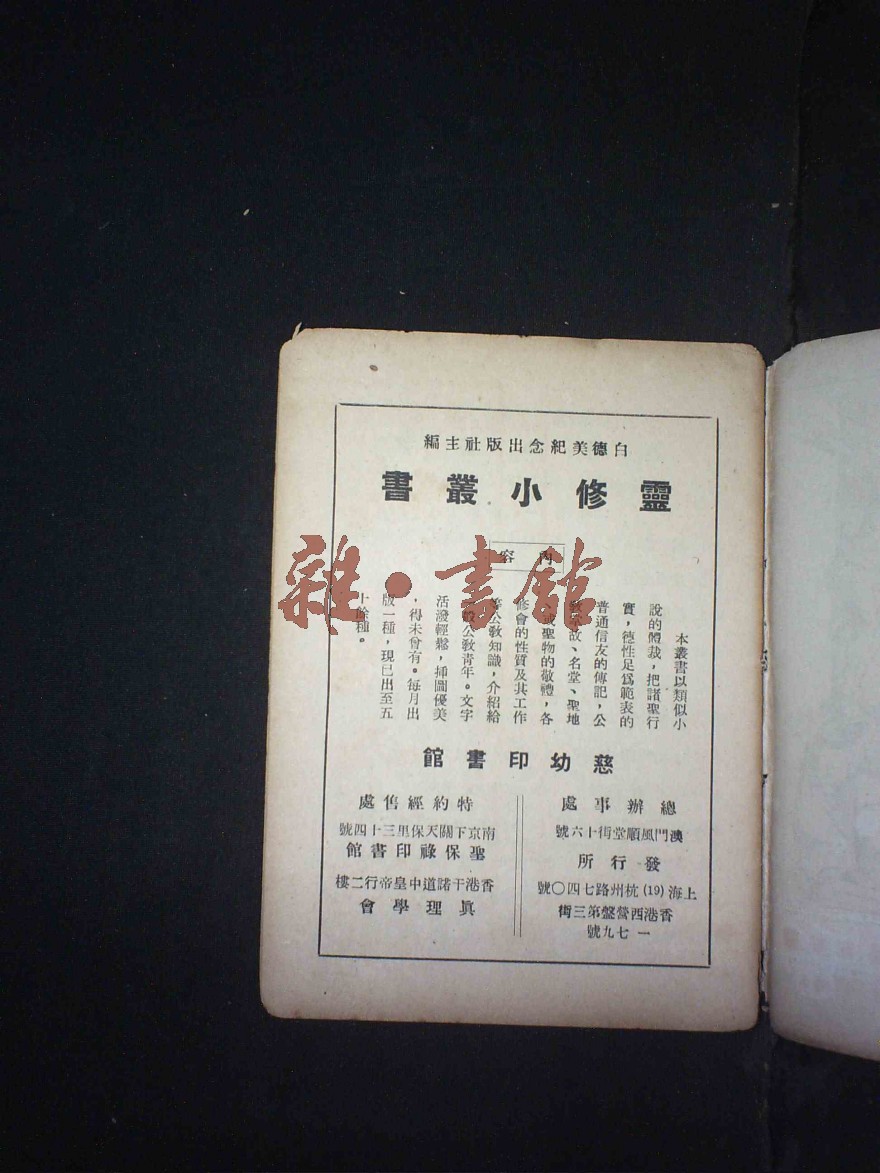 白德美紀念出版社主編
靈修小叢書
內容
本叢書以類似小
說的體裁，把諸聖行
實，德性足爲範表的
普通信友的傳記，公
敎掌故、名堂、聖地
、或聖物的敬禮，各
修會的性質及其工作
等公敎知識，介紹給
一般公敎青年。文字
活潑輕鬆，揷圖優美
，得未曾有。每月出
版一種，現已出至五
十餘種。
慈幼印書館
總辦事處
澳門風順堂街十六號
發行所
上海(19)杭州路七四〇號
香港西營盤第三街
一七九號
特約經售處
南京下關天保里三十四號
聖保祿印書館
香港干諾道中皇帝行二樓
眞理學會
雜·書館